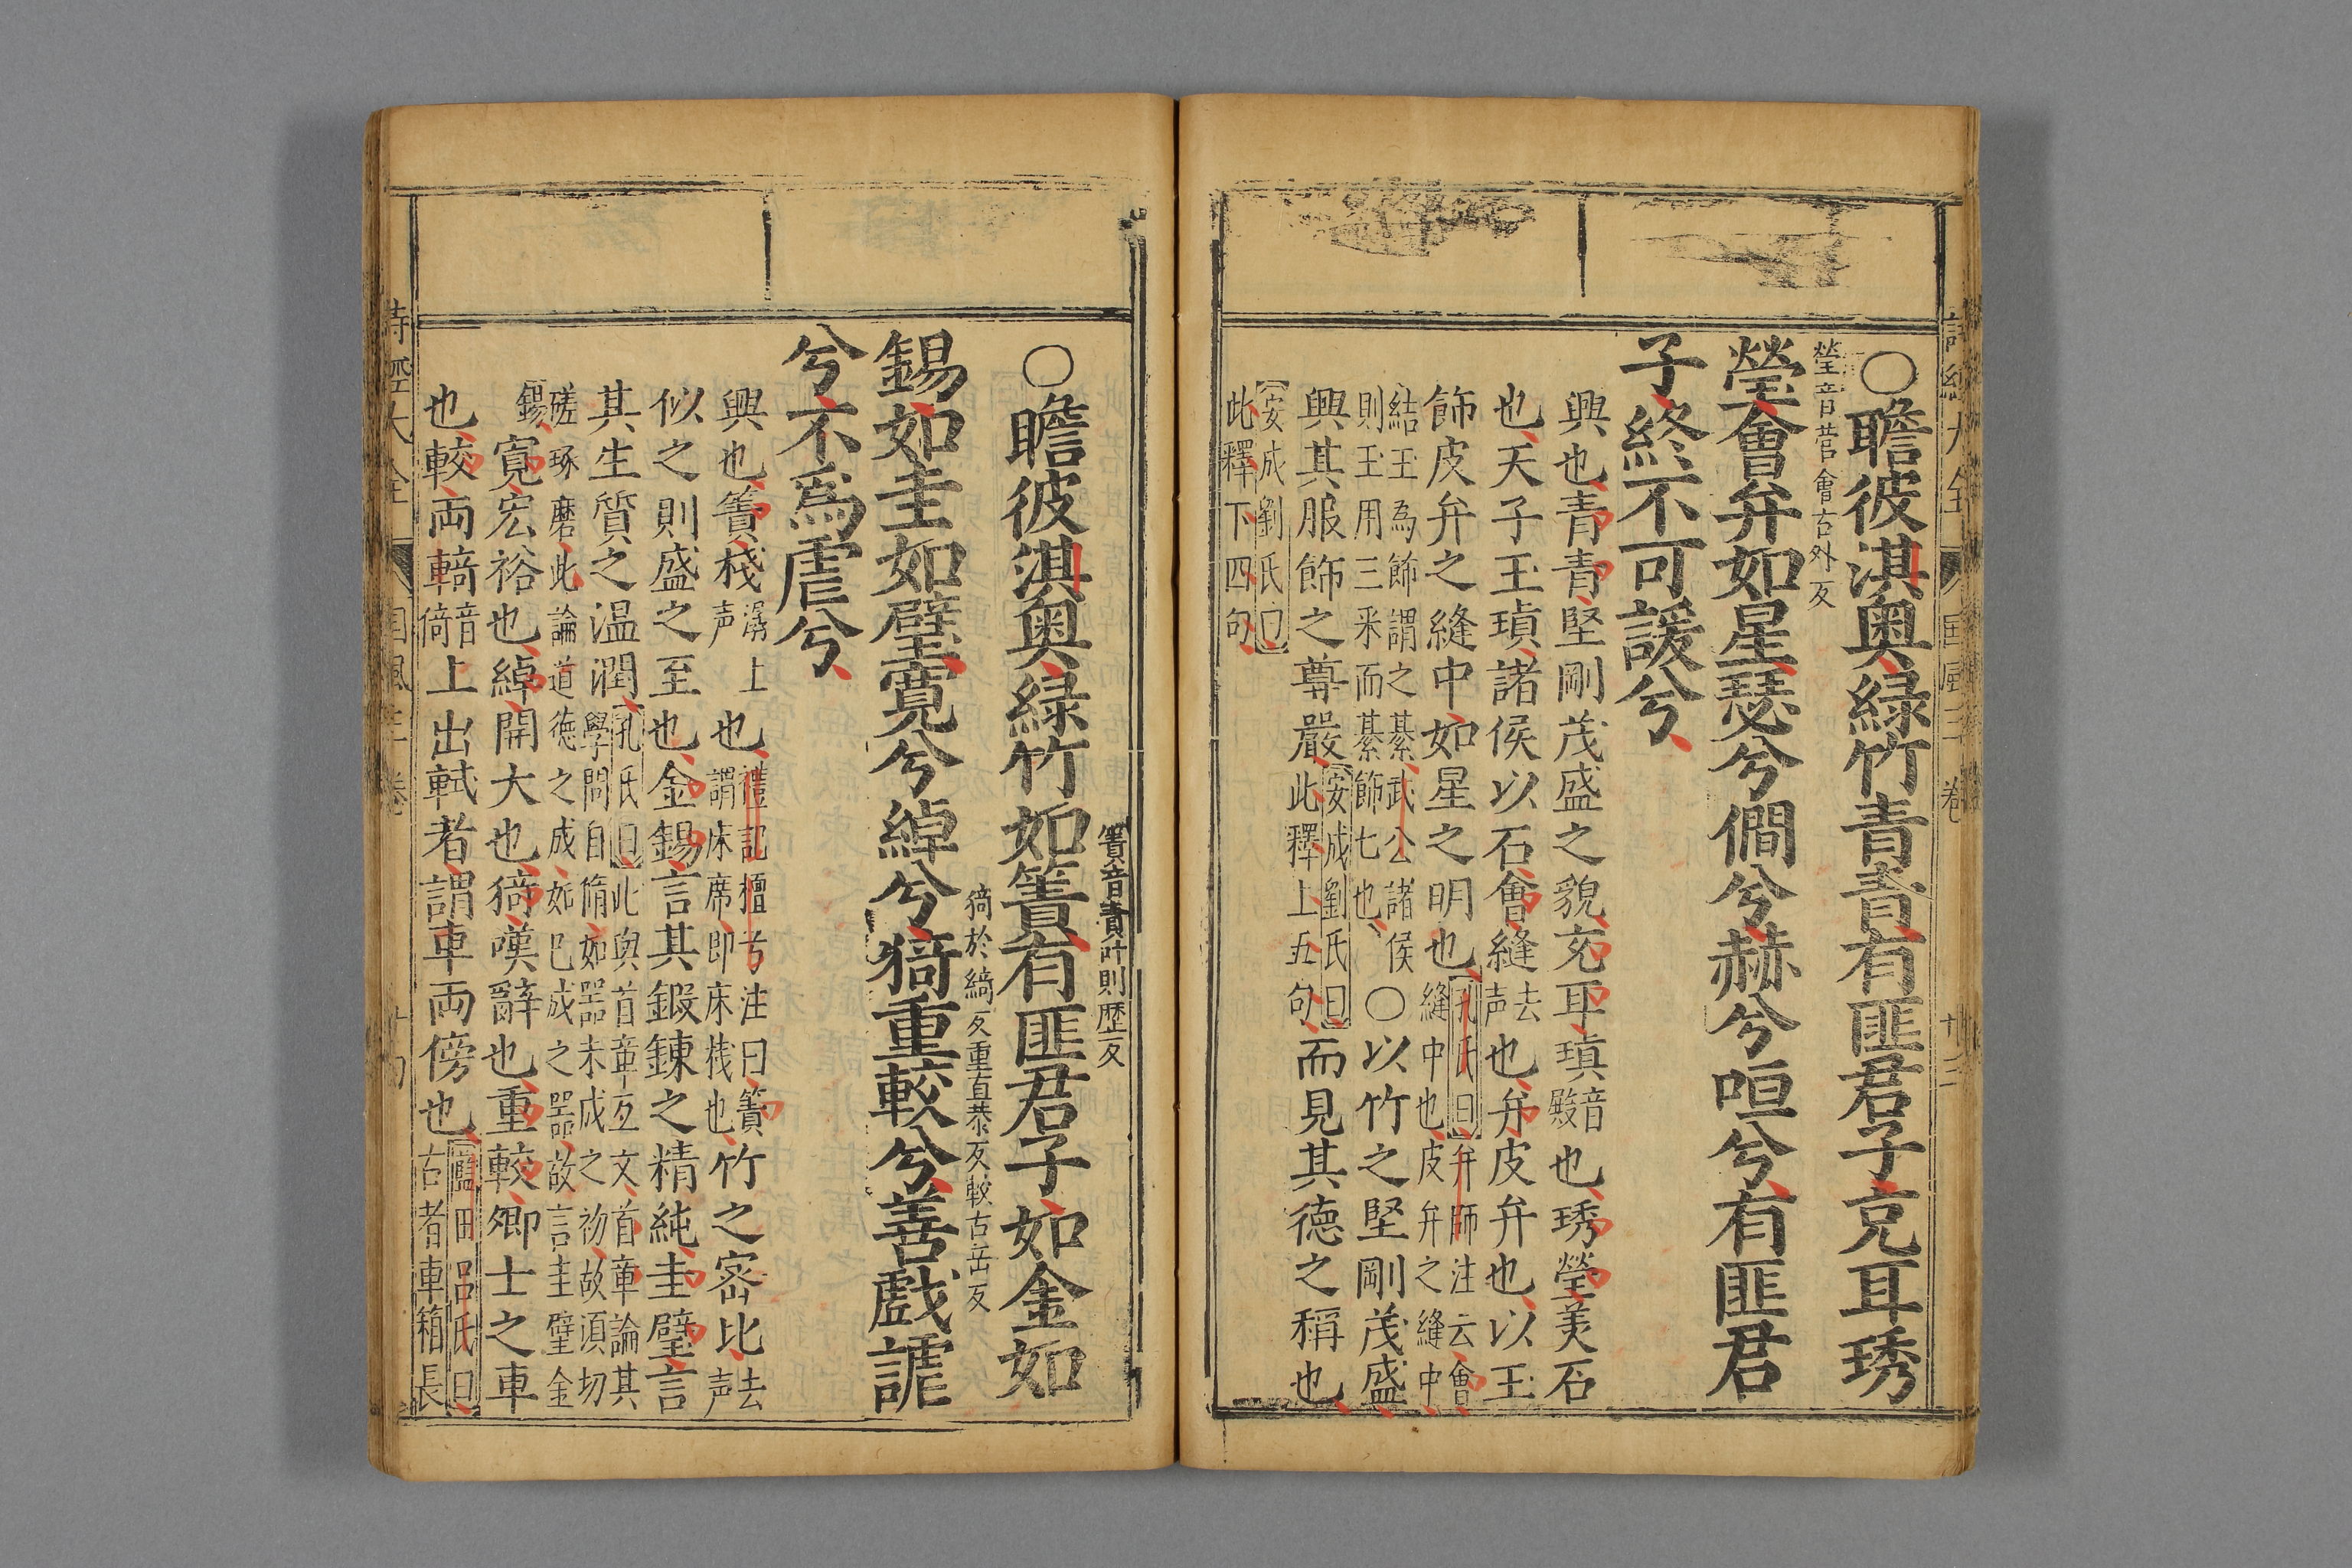 ○瞻彼淇奥綠竹青青有匪君子充耳琇
瑩音營會古外反
瑩會弁如星瑟兮僩兮赫兮咺兮有匪君
子終不可諼兮
興也青青堅剛茂盛之貌充耳瑱音殿也琇瑩美石
也天子玉瑱諸侯以石會縫去声也弁皮弁也以玉
飾皮弁之縫中如星之明也孔氏曰弁師注云會縫中也皮弁之縫中
結玉為飾謂之綦武公諸侯則玉用三采而綦飾七也○以竹之堅剛茂盛
興其服飾之尊嚴安成劉氏曰此釋上五句而見其德之稱也
安成劉氏曰此釋下四句
簀音責叶則歷反
○瞻彼淇奥綠竹如簀有匪君子如金如
猗於綺反重直恭反較古岳反
錫如圭如璧寬兮綽兮猗重較兮善戲謔
兮不爲虐兮
興也簀棧潺上声也禮記檀弓注曰簀謂床席即床棧也竹之密比去声
似之則盛之至也金錫言其鍛鍊之精純圭璧言
其生質之温潤孔氏曰此與首章互文首章論其學問自脩如器未成之初故須切
磋琢磨此論道德之成如已成之器故言圭璧金錫
寬宏裕也綽開大也猗嘆辭也重較卿士之車
也較両輢音倚上出軾者謂車両傍也藍田呂氏曰古者車箱長
詩經大全
国風三卷